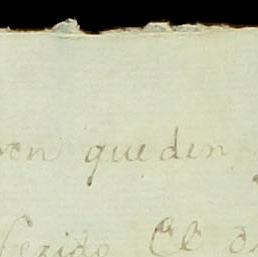 ren queden
ferido El